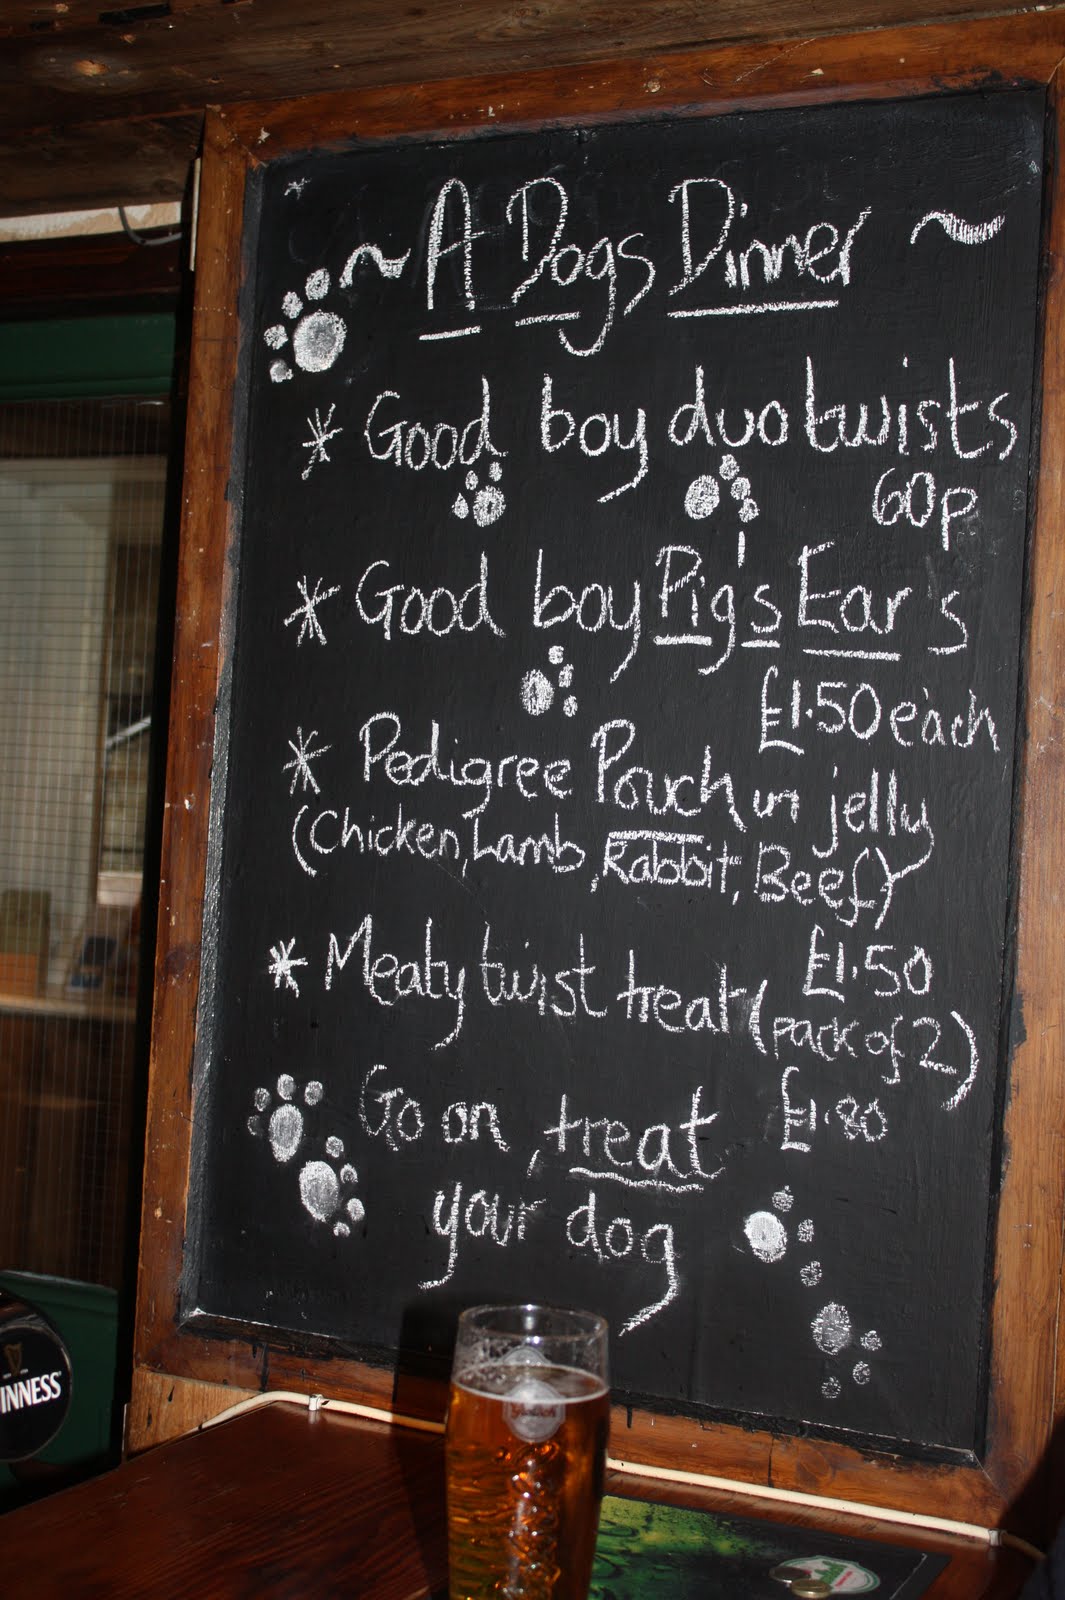 ~ A Dogs Dinner ~
* Good boy duo twists
60p
* Good boy Pig's Ears
£1.50 each
* Pedigree Pouch in jelly
(Chicken, Lamb, Rabbit, Beef)
£1.50
* Meaty twist treat (pack of 2)
£1.80
Go on, treat
your dog
INNESS